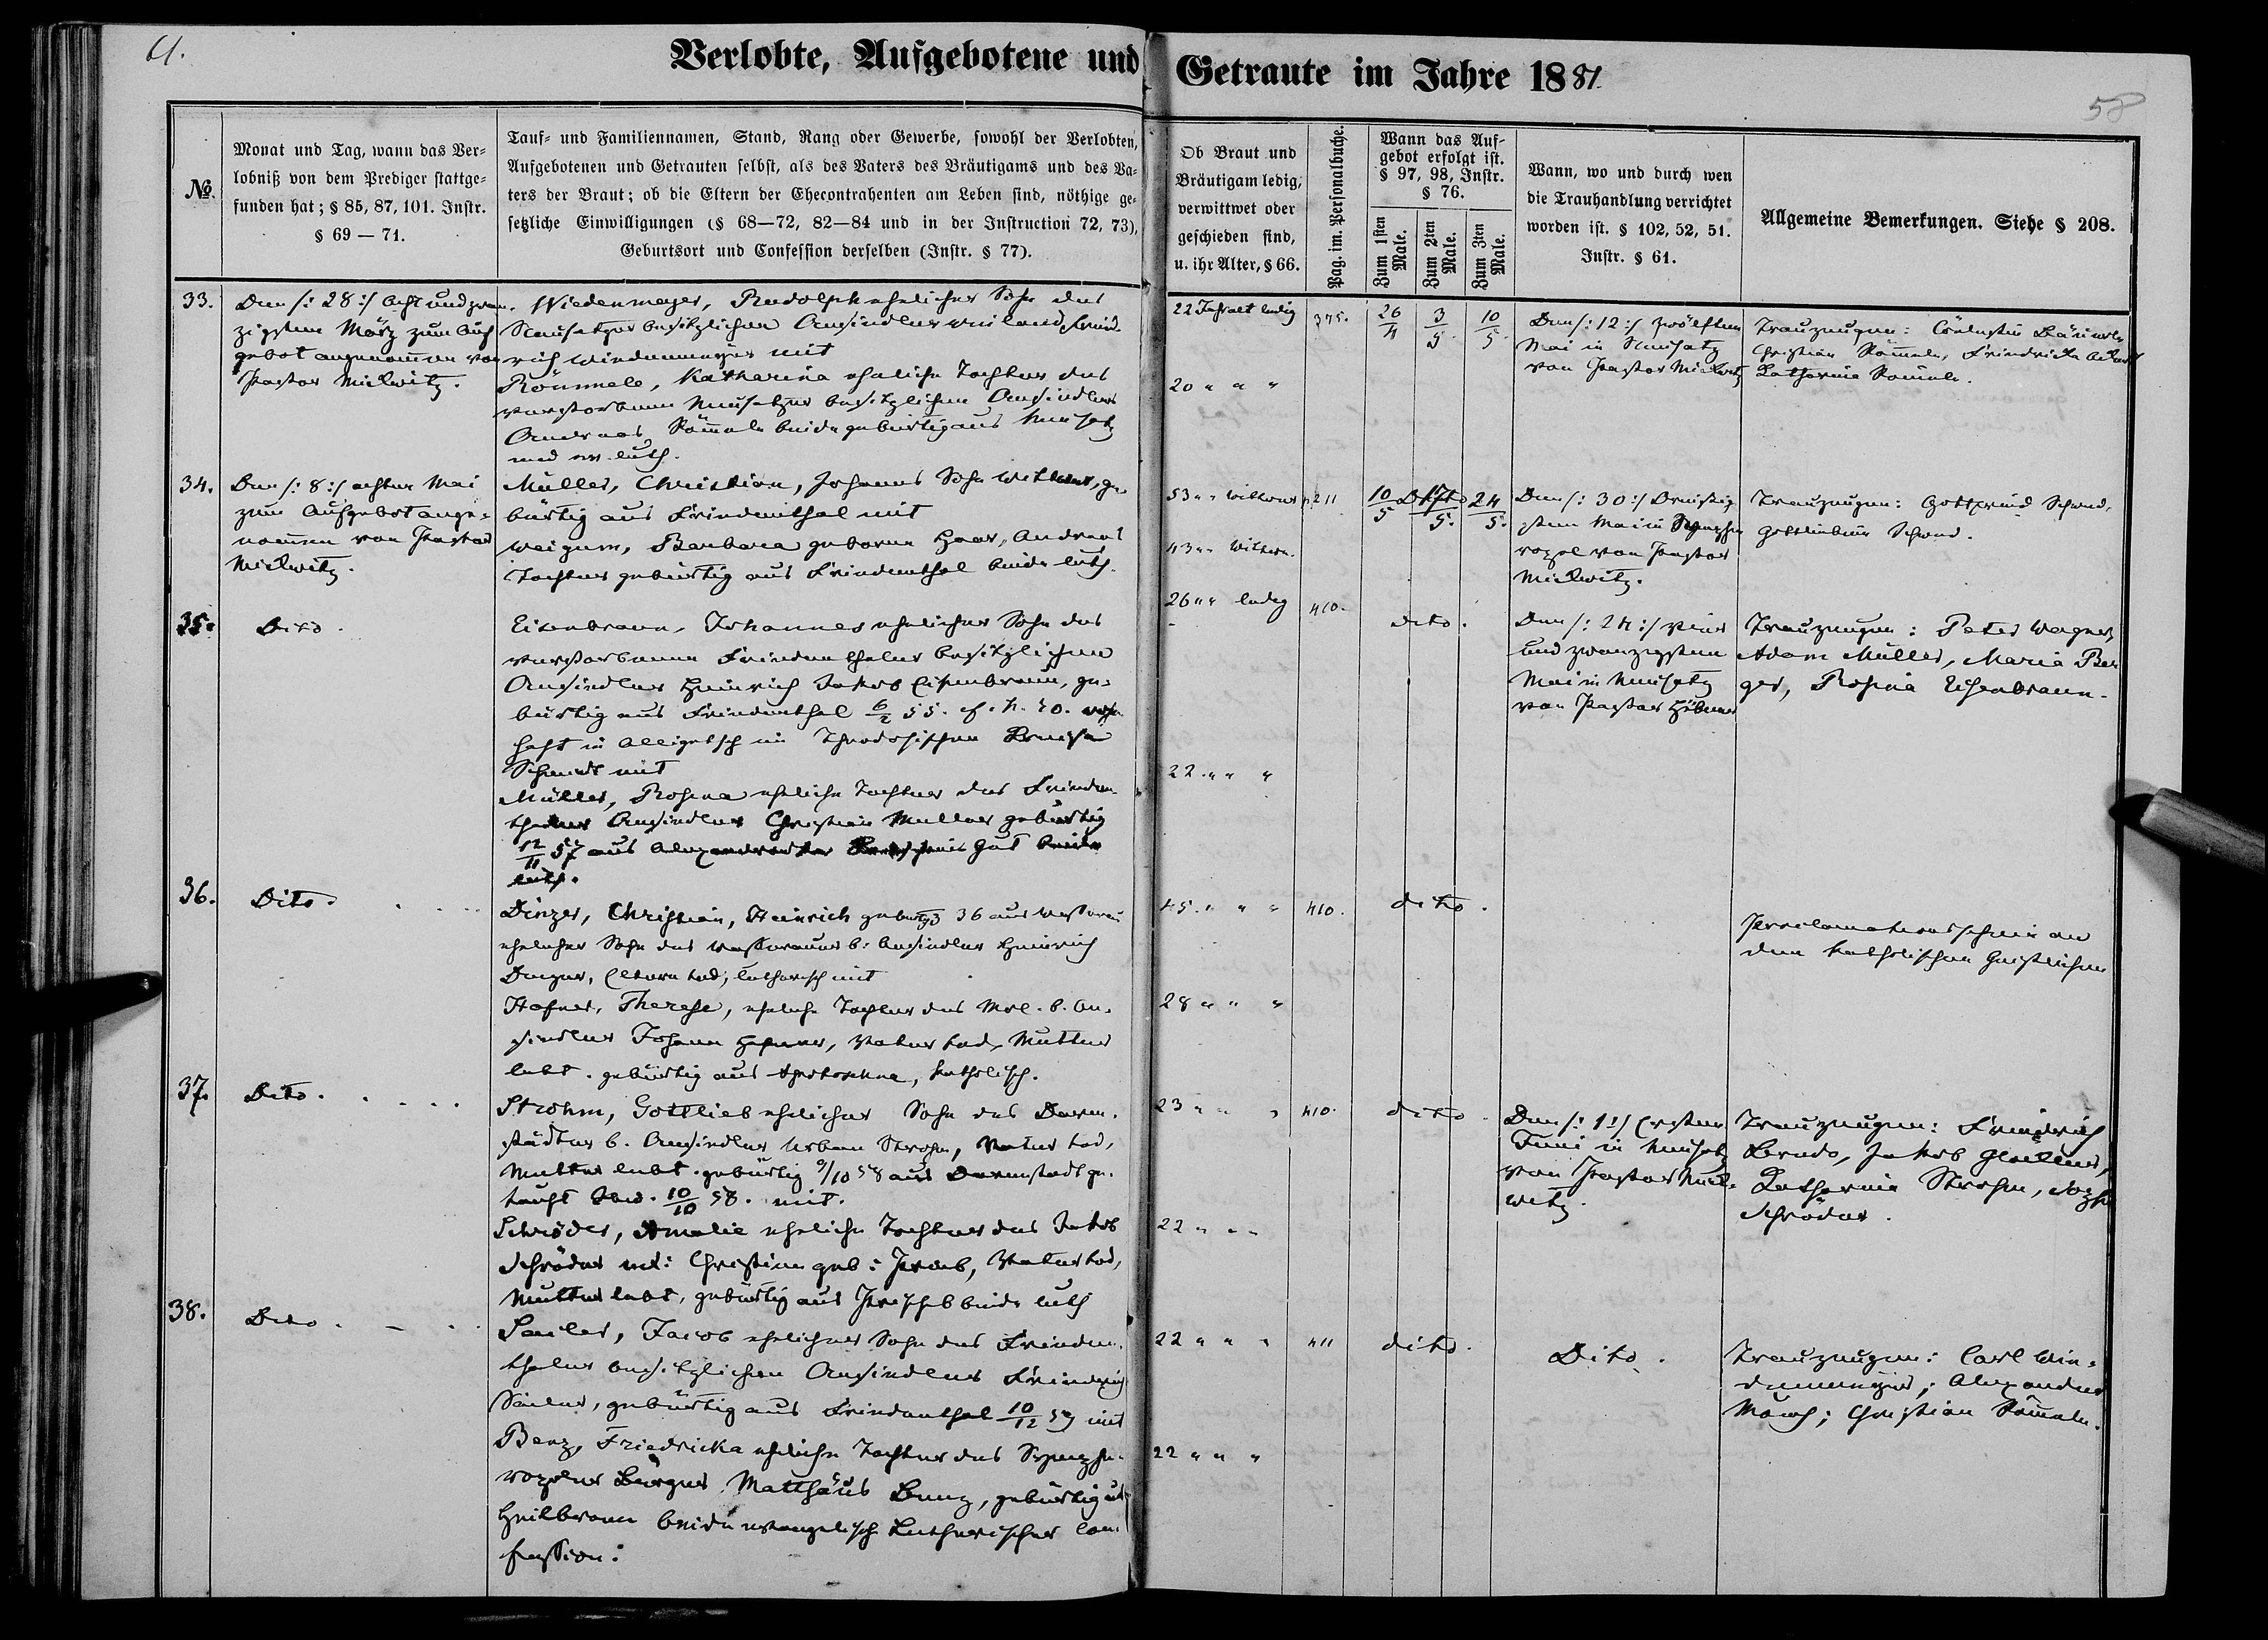 61.
Verlobte, Aufgebotene und Getraute im Jahre 1881.
58
№.
Monat und Tag, wann das Ver-
lobniß von dem Prediger stattge-
funden hat; § 85, 87, 101. Instr.
§ 69 — 71.
Tauf- und Familiennamen, Stand, Rang oder Gewerbe, sowohl der Verlobten,
Aufgebotenen und Getrauten selbst, als des Vaters des Bräutigams und des Va-
ters der Braut; ob die Eltern der Ehecontrahenten am Leben sind, nöthige ge-
setzliche Einwilligungen (§ 68—72, 82—84 und in der Instruction 72, 73),
Geburtsort und Confession derselben (Instr. § 77).
Ob Braut und
Bräutigam ledig,
verwittwet oder
geschieden sind,
u. ihr Alter, § 66.
Pag. im. Personalbuche.
Wann das Auf-
gebot erfolgt ist.
§ 97, 98, Instr.
§ 76.
Zum 1sten
Male.
Zum 2ten
Male.
Zum 3ten
Male.
Wann, wo und durch wen
die Trauhandlung verrichtet
worden ist. § 102, 52, 51.
Instr. § 61.
Allgemeine Bemerkungen. Siehe § 208.
33.
Den /: 28 :/ acht und zwan-
zigsten März zum Auf-
gebot angenommen von
Pastor Mickwitz.
Wiedenmeyer, Rudolph ehelicher Sohn des
Neusatzer besitzlichen Ansiedlers weiland Fried-
rich Wiedenmeyer mit
Römmele, Katharina eheliche Tochter des
verstorbenen Neusatzer besitzlichen Ansiedlers
Andreas Römmele beide gebürtig aus Neusatz
und ev. luth.
22 Jahr alt ledig
20 " " "
375.
26/4
3/5.
10/5
Den /: 12 :/ zwölften
Mai in Neusatz
von Pastor Mickwitz
Trauzeugen:
Christian Römmele, Friedricke
Katharina Römmele.
34.
Den /: 8 :/ achten Mai
zum Aufgebot ange-
nommen von Pastor
Mickwitz.
Müller, Christian, Johannes Sohn Wittwer, ge-
bürtig aus Friedenthal mit
Weigum, Barbara geborne Haar, Andreas
Tochter gebürtig aus Friedenthal beide luth.
53 " " Wittwer
43 " " Wittwe.
211
10/5
17/5.
24/5.
Den /: 30 :/ Dreißig-
sten Mai in Sympher-
ropol von Pastor
Mickwitz.
Trauzeugen: Gottfried Schmid,
Gottliebin Schmid.
35.
Dito.
Eisenbraun, Johannes ehelicher Sohn des
verstorbenen Friedenthaler besitzlichen
Ansiedlers Heinrich Jakob Eisenbraun, ge-
bürtig aus Friedenthal 6/2 55. wohn-
haft in im Theodosischen Kreise
Schmidt mit
Müller, Rosina eheliche Tochter des Frieden-
thaler Ansiedlers Christian Müller gebürtig
12/11 57 aus Gut beide
luth.
26 " " ledig
22 " " "
410.
dito.
Den /: 24 :/ vier
und zwanzigsten
Mai in Neusatz
von Pastor Hübner
Trauzeugen: Peter Wagner,
Adam Müller, Maria Ber-
ger, Rosina Eisenbraun.
36.
Dito.
Dinzer, Christian, Heinrich 36 aus
ehelicher Sohn des b. Ansiedlers Heinrich
Dinzer, Eltern tod, lutherisch mit
Hafner, Therese, eheliche Tochter des Mol. b. An-
siedlers Johann Hafner, Vater tod, Mutter
lebt. gebürtig aus, katholisch.
45. " " "
28 " " "
410.
dito.
Proclamationsschein an
den katholischen Geistlichen
37.
Dito.
Strohm, Gottlieb ehelicher Sohn des Darm-
städter b. Ansiedlers Urban Strohm, Vater tod,
Mutter lebt. gebürtig 9/10 58 aus Darmstadt ge-
tauft 10/10 58. mit.
Schröder, Amalie eheliche Tochter des Jakob
Schröder und: Christine geb: Prieb, Vater tod,
Mutter lebt, gebürtig aus Prischib beide luth
23 " " "
22 " " "
410.
dito
Den /: 1 :/ Ersten
Juni in Neusatz
von Pastor Mick-
witz.
Trauzeugen: Friedrich
Jakob
Katharina Strohm, Sophie
Schröder.
38.
Dito.
Sailer, Jacob ehelicher Sohn des Frieden-
thaler besitzlichen Ansiedlers Friedrich
Sailer, gebürtig aus Friedenthal 10/12 59 mit
Benz, Friedricka eheliche Tochter des Symphe-
ropoler Bürgers Matthäus Benz, gebürtig aus
Heilbronn beide evangelisch Lutherischer Con-
fession.
22 " " "
22 " " "
411
dito.
Dito.
Trauzeugen: Carl Wie-
denmeyer; Alexander
Mauch; Christian Römmele.